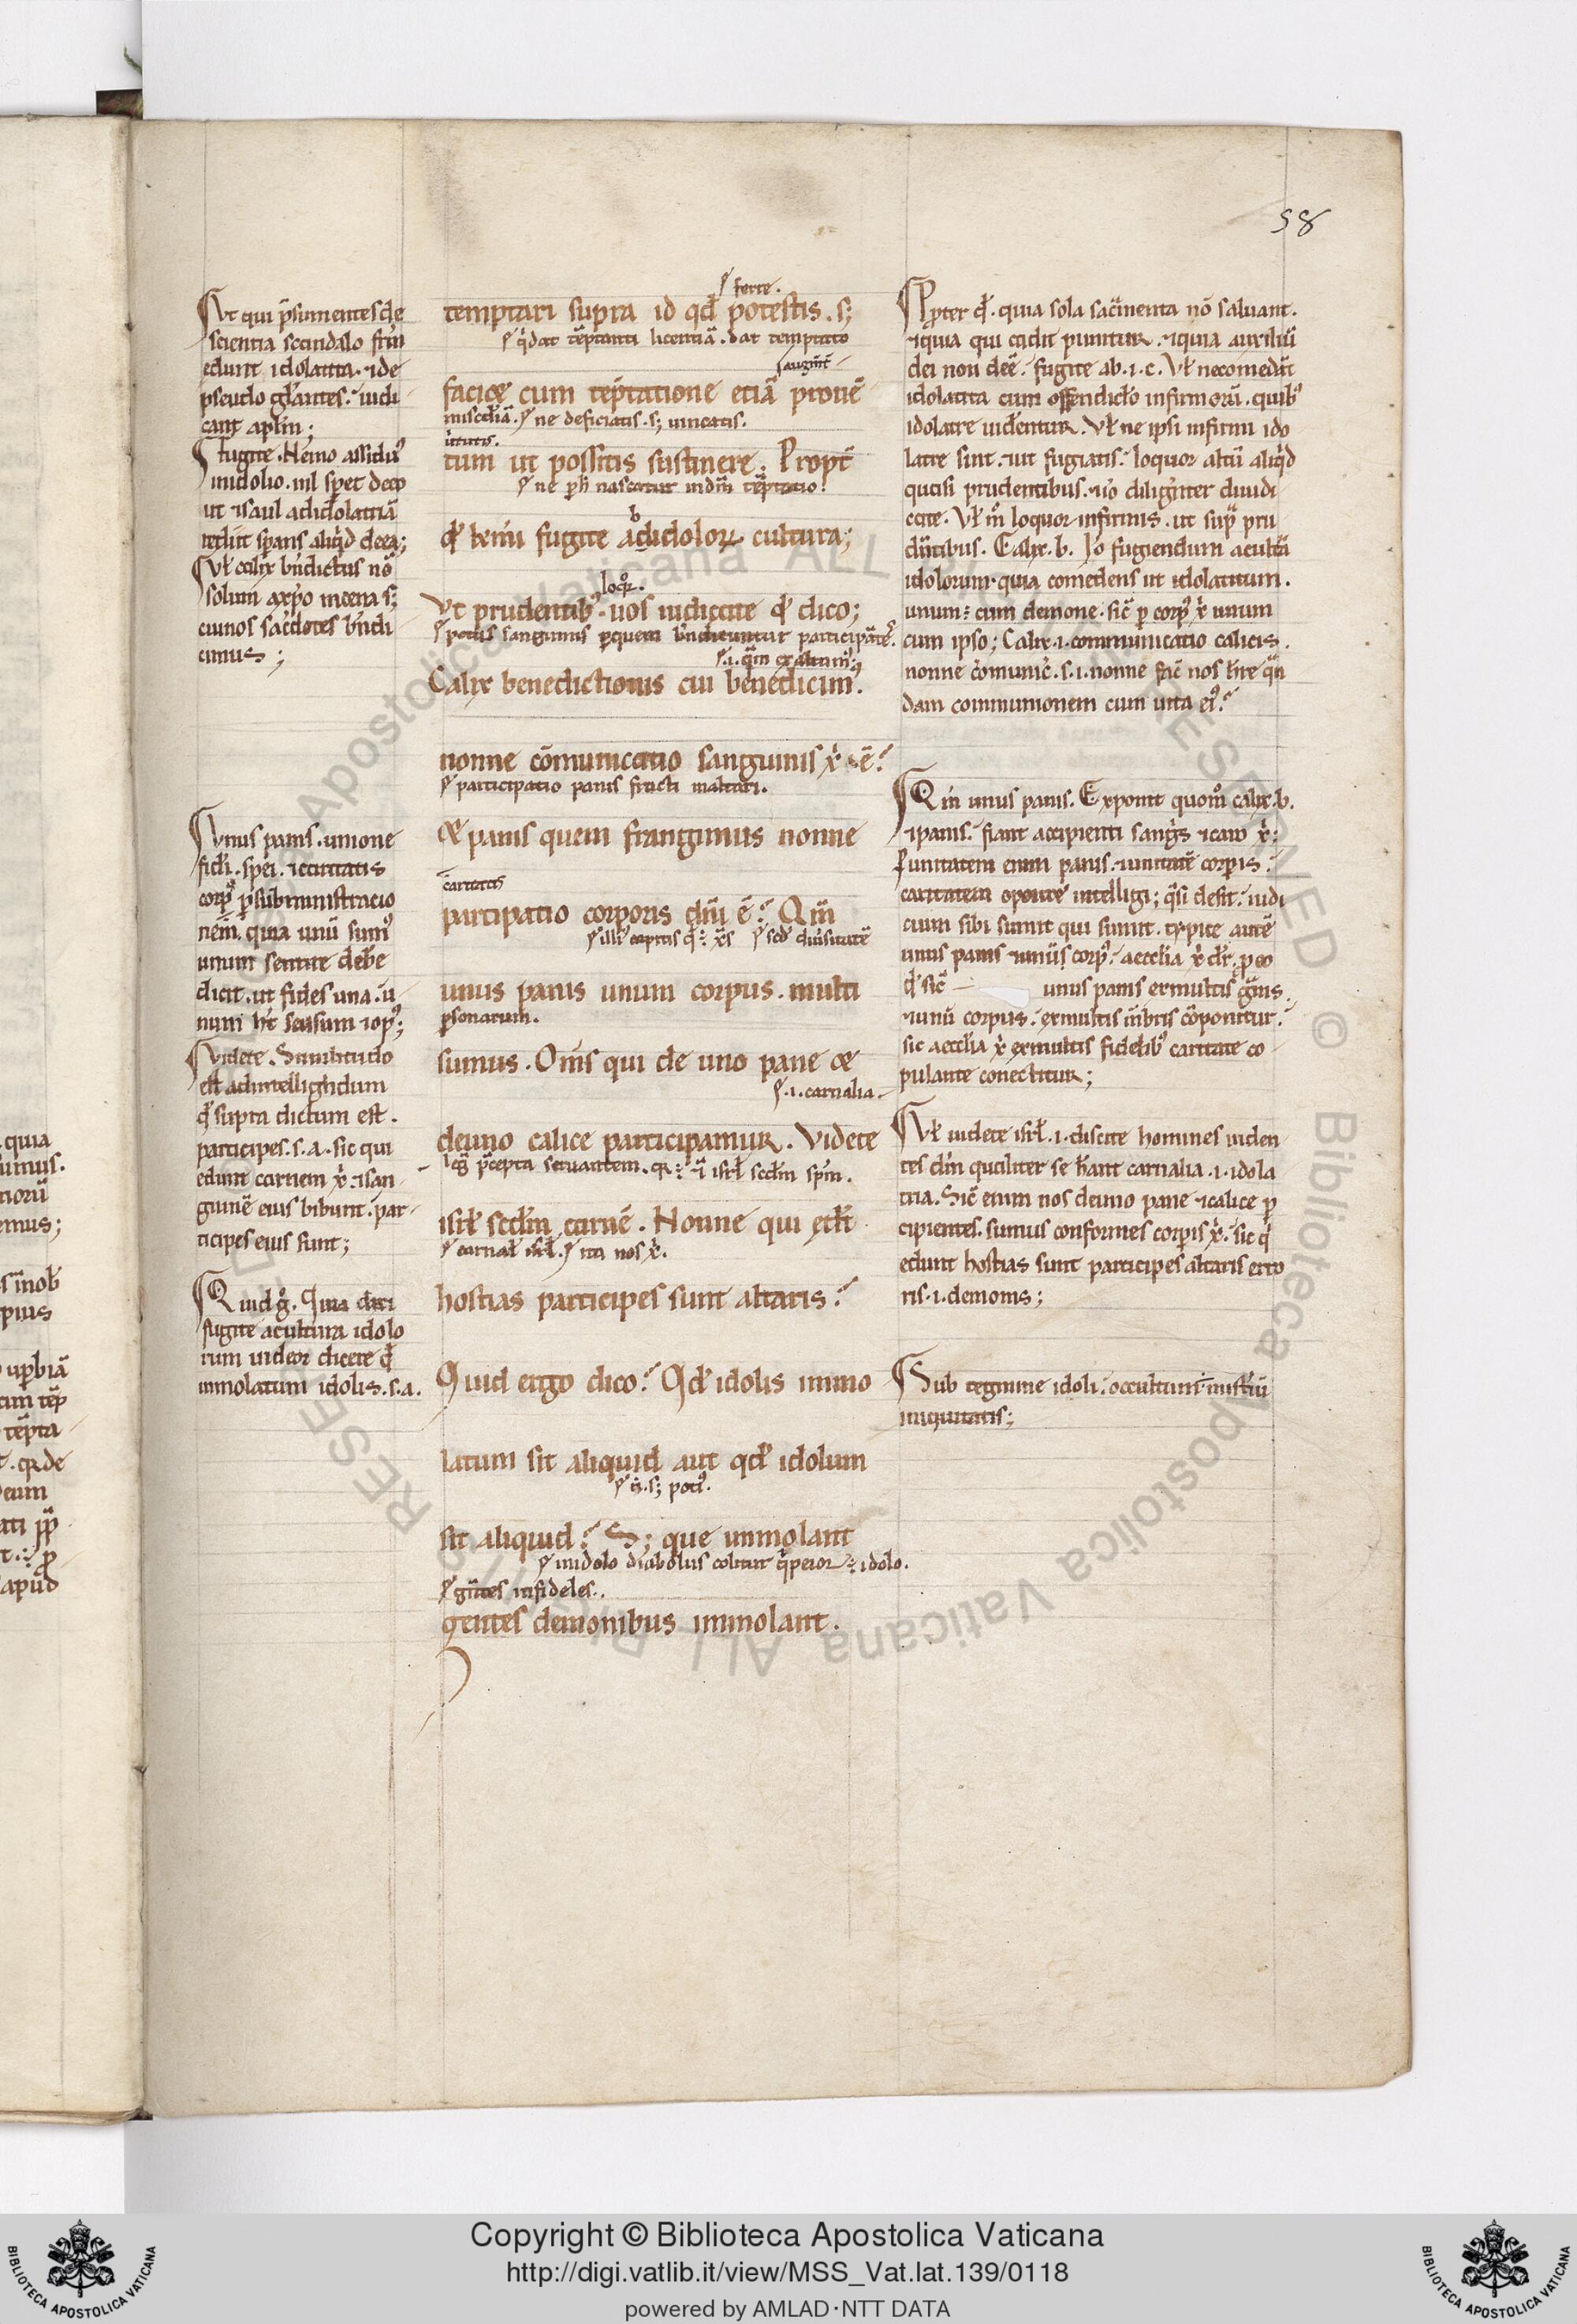 58
Vt qui p̄sumentes de
scientia scandalo frm̄
edunt idolatita. ⁊ de
pseudo gl̄antes. iudi
cant apl̄m;
Fugite. Nemo assiduꝰ
in idolio. nil speret deeo
ut ⁊ saul ad idolatriā
Vl̄ calix bn̄dictus nō
solum a xp̄o in cena s;
cui nos sac̄dotes bn̄di
cimus;
Vnus panis. unione
fidei. spei. ⁊ caritatis
corpꝰ p̄ subministratio
nem̄. quia unū sumꝰ
unum sentire debē
dicit. ut fides una. u
num h̄t sensum ⁊ opꝰ;
Videte. Similitudo
est ad intelligendum
qd̄ supra dictum est.
participes. s. a. sic qui
edunt carnem x̄ꝰ. ⁊ san
guinē eius bibunt. par
ticipes eius sunt;
Quid g̊. Quia dixi
fugite a cultura idolo
rum uideor dicere qd̄
immolatum idolis. s. a.
ferre.
temptari supra id qd̄ potestis. s;
q̇ dat tēptanti licentiā. dat temptato
augm̄t
faciꝫ cum tēptatione etiā prouē
miscd̄iā. ne deficiatis. s; uincatis.
uirtutis.
tum ut possitis sustinere. Propt̄
ne p̄ h̄ nascatur in dm̄ tēptatio.
b
qd̄ kr̄mi fugite ab idoloꝝ cultura;
loqr̄.
Vt prudentibꝰ. uos iudicate qd̄ dico;
potus sanguinis per quem bn̄dicuntur participātēꝰ.
.i. qm̄ exaltamꝰ
Calix benedictionis cui benedicimꝰ.
nonne cōmunicatio sanguinis x̄ꝰ ē?
participatio panis fracti in altari.
⁊ panis quem frangimus nonne
caritatis
partipatio corporis dn̄i ē? Qm̄
illiꝰ capitis q̇ ÷ x̄s scd̄ diuersitatē
unus panis unum corpus. multi
p̄sonarum.
sumus. Om̄s qui de uno pane ⁊
.i. carnalia.
de uno calice participamur. Videte
leḡ p̄cepta seruantem. qr̄ ÷ ⁊ isrl̄ scd̄m sp̄m.
isrl̄ scd̄m carnē. Nonne qui edt̄
carnal̄ isrl̄. ita nos x̄ꝰ.
hostias participes sunt altaris?
Quid ergo dico? Qd̄ idolis immo
latum sit aliquid aut qd̄ idolum
n̄. s; potiꝰ.
sit aliquid? S; que immolant
in idolo diabolus colitur q̇ peior ÷ idolo.
gn̄tes infideles.
gentes demonibus immolant.
Propter qd̄. quia sola sac̄menta nō saluant.
⁊ quia qui cadit punitur. ⁊ quia auxiliū
dei non deē. fugite ab. i. c. Vl̄ ne comedāt
idolatita cum offendiclo infirmorū. quibꝰ
idolatre uidentur. Vl̄ ne ipsi infirmi ido
latre sint. ⁊ ut fugiatis. loquor altū aliq̇d
quasi prudentibus. ⁊ uos diligenter diiudi
cate. Vl̄ m̊ loquor infirmis. ut supͣ pru
dn̄tibus. Calix. b. Iō fugiendum a cultā
idolorum. quia comedens ut idolatitum.
unum ÷ cum demone. sic̄ p corpꝰ x̄ꝰ unum
cum ipso; Calix. i. communicatio calicis.
nonne cōmunic̄. s. i. nonne fac̄ nos h̄re quā
dam communionem cum uita eiꝰ?
Qm̄ unus panis. Exponit quom̊ calix. b.
⁊ panis. fiant accipienti sanḡs ⁊ caro x̄ꝰ:
ꝑ unitatem enim panis. ⁊ unitatē corporis.
caritatem oportet intelligi; q̄ si desit. iudi
cium sibi sumit qui sumit. typice autē
unus panis ⁊ unūs corpꝰ. aeccl̄ia x̄ꝰ dr̄. p eo
qd̄ sic̄ — unus panis ex multis granis.
⁊ unū corpus. ex multis m̄bris cōponitur.
sic aeccl̄ia x̄ꝰ ex multis fidelibꝰ caritate co
pulante conectitur;
Vl̄ uidete isrl̄. i. discite homines uiden
tes dm̄ qualiter se h̄ant carnalia. i. idola
tria. Sic̄ enim nos de uno pane ⁊ calice p
cipientes. sumus conformes corporis x̄ꝰ. sic q̇
edunt hostias sunt participes altaris erro
ris. i. demonis;
Sub tegmine idoli. occultum misteriū
iniquitatis;
quia
Copyright © Biblioteca Apostolica Vaticana
http://digi.vatlib.it/view/MSS_Vat.lat.139/0118
powered by AMLAD·NTT DATA
BIBLIOTECA APOSTOLICA VATICANA
BIBLIOTECA APOSTOLICA VATICANA